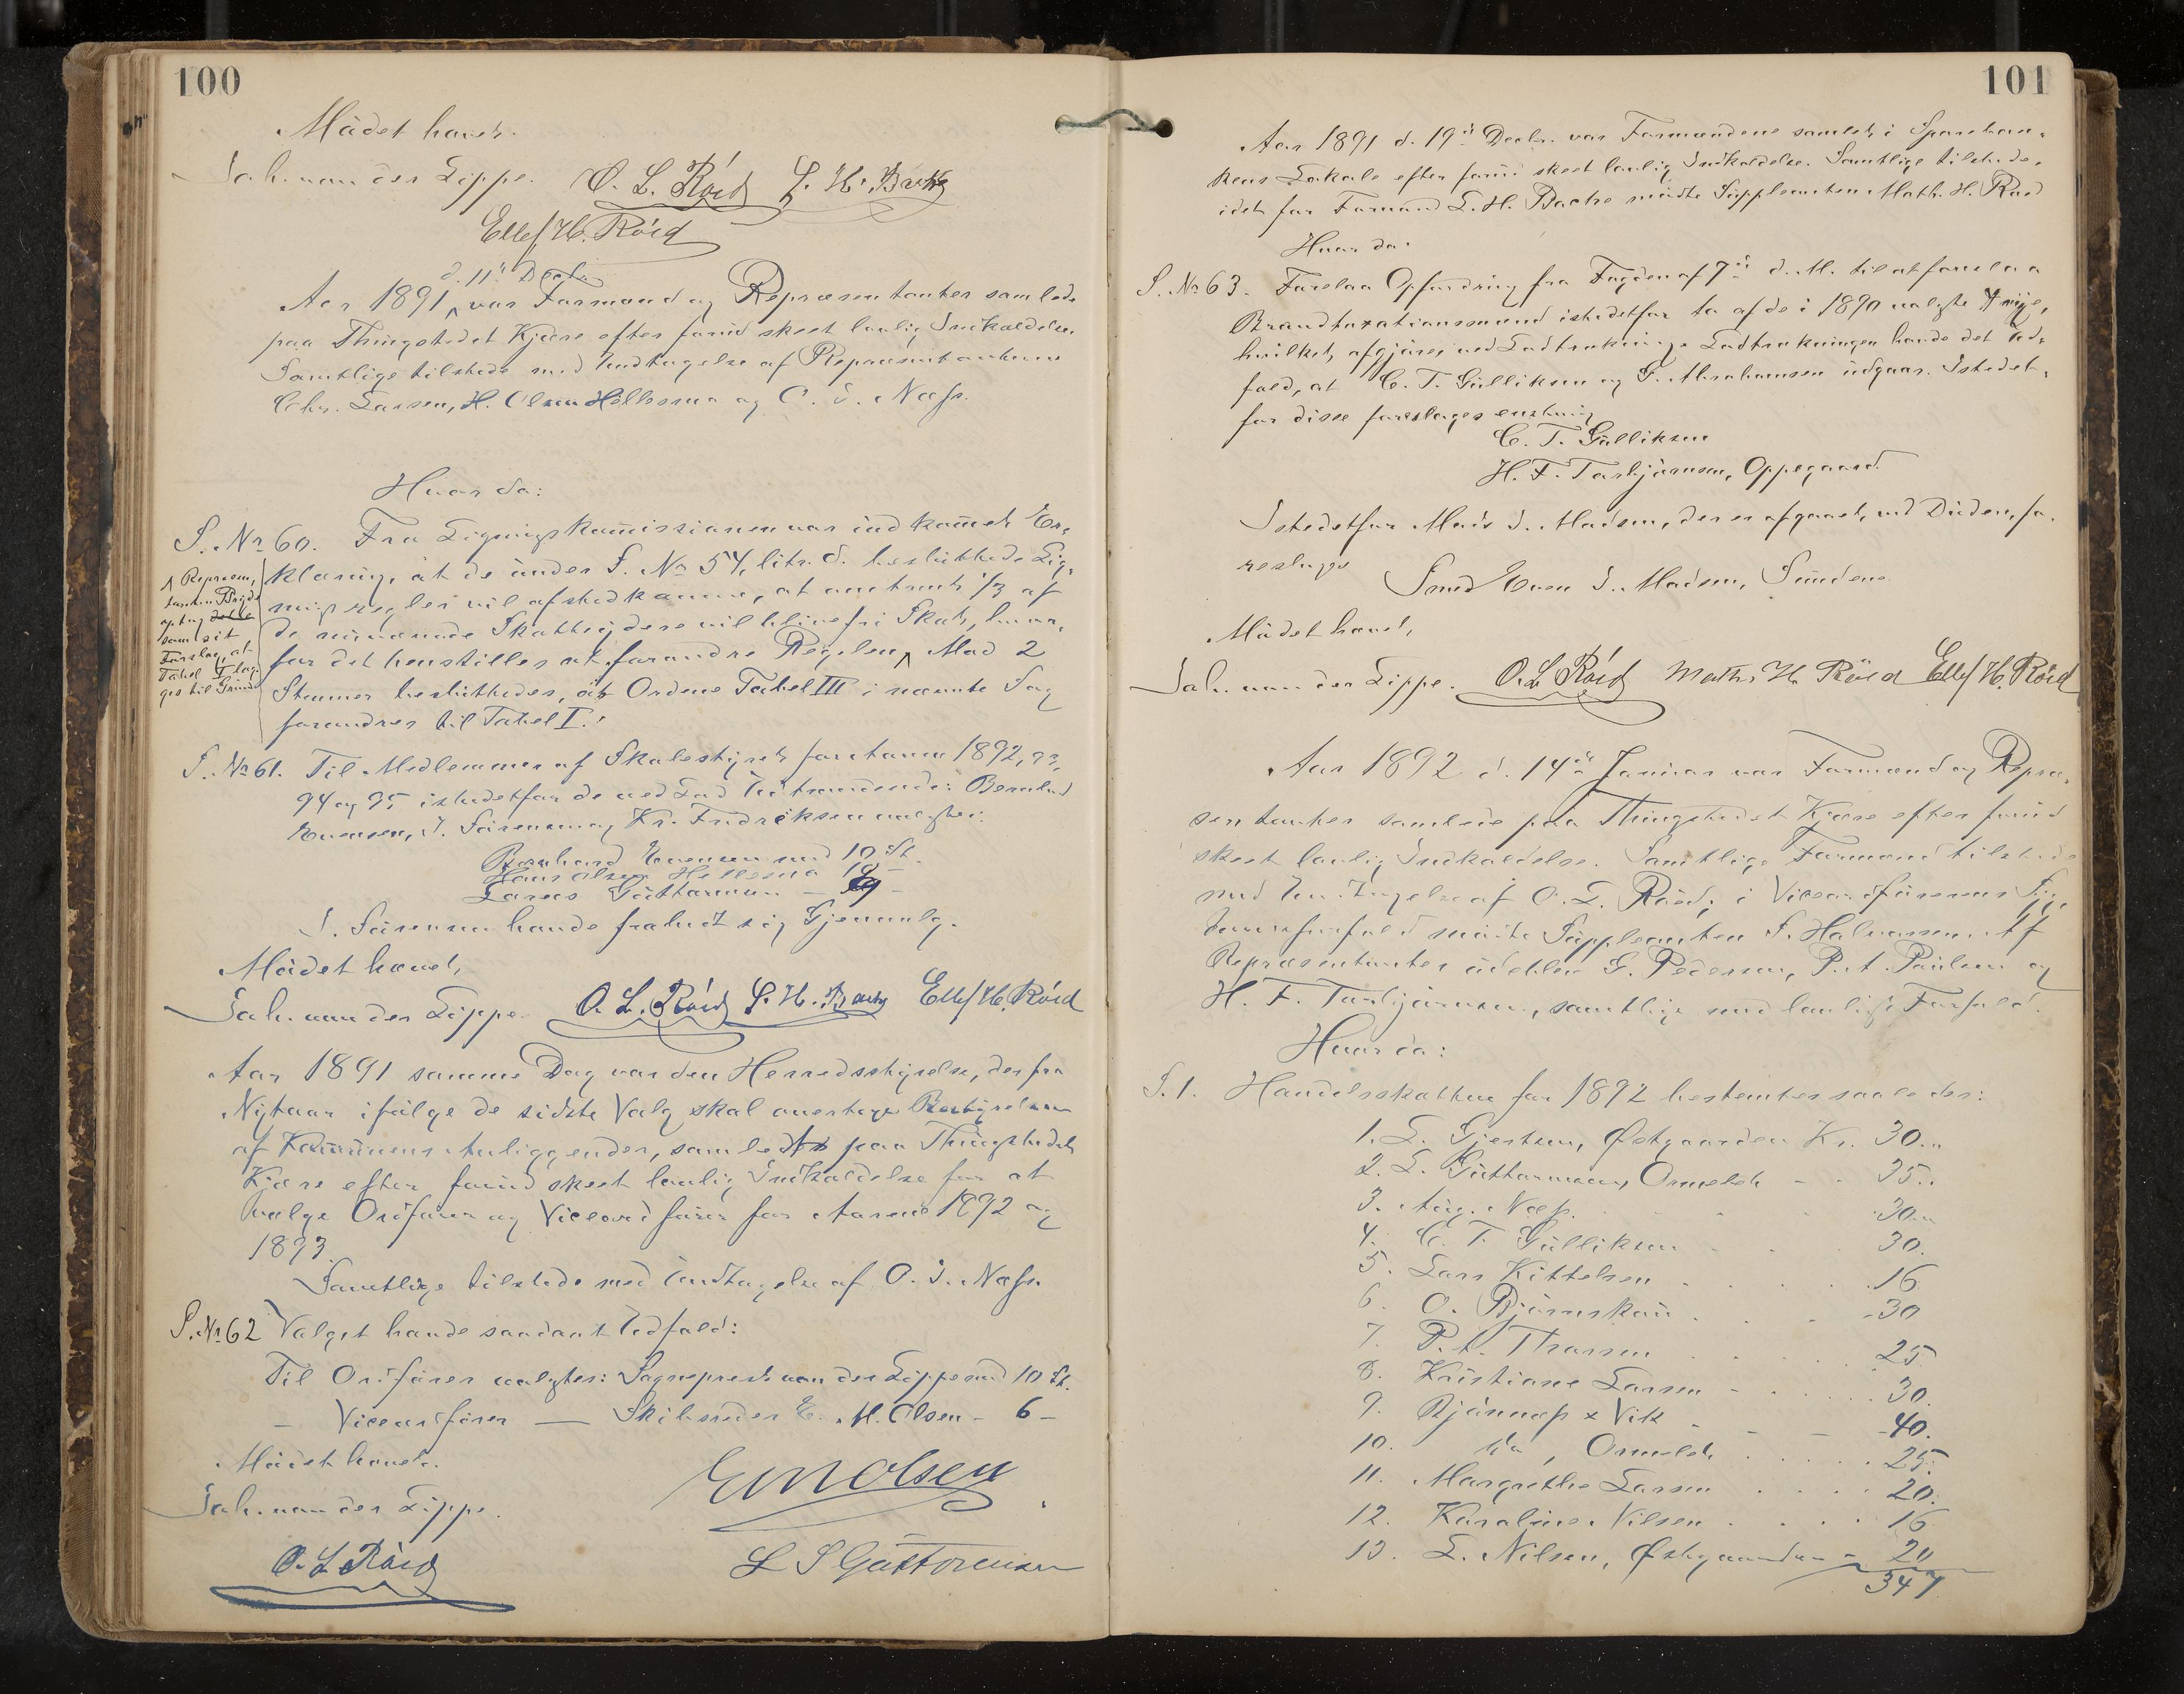 100
Mødet hævet.
Joh. van der Lippe. O. L. Röed L. H. Bache
Ellef H. Röed
d. 11te Decbr.
Aar 1891 var Formænd og Repræsentanter samlede
paa Thingstedet Kjære efter forud skeet lovlig Indkaldelse.
Samtlige tilstede med Undtagelse af Repræsentanterne
Chr. Larsen, H. Olsen Hellesmo og O. I. Næss.
Hvor da:
S. No 60. Fra Ligningskommissionen var indkommet Er-
klæring, at de under S. No 54, litr. d. besluttede Lig-
ningsregler vil afstedkomme, at omtrent 1/3 af
de nuværende Skatteydere vil blive fri Skat, hvor-
for det henstilles at forandre Regelen. Mod 2
Stemmer besluttedes, at Ordene Tabel III i nævnte Sag
forandres til Tabel I.
Repræsen-
tanten
optog dette
som sit
Forslag, at
Tabel I læg-
ges til Grund
S. No 61. Til Medlemmer af Skolestyret for Aarene 1892, 93,
94 og 95 istedetfor de ved Lod udtrædende: Bernhard
Evensen, J. Sørensen og Kr. Fredriksen valgtes:
Bernhard Evensen med 10 St.
Hans Olsen Hellesmo 10 -
Lars Guttormsen - 9 -
J. Sørensen havde frabedt sig Gjenvalg.
Mødet hævet,
Joh. van der Lippe. O. L. Röed L. H. Bache Ellef H. Röed
Aar 1891 samme Dag var den Herredsstyrelse, der fra
Nytaar ifølge de sidste Valg skal overtage Bestyrelsen
af Kommunens Anliggender, samlet paa Thingstedet
Kjære efter forud skeet lovlig Indkaldelse for at
vælge Ordfører og Viceordfører for Aarene 1892 og
1893.
Samtlige tilstede med Undtagelse af O. I. Næss.
S. No 62 Valget havde saadant Udfald:
Til Ordfører valgtes: Sogneprest van der Lippe med 10 St.
- Viceordfører — Skibsreder E. M. Olsen - 6 -
Mødet hævet.
Joh. van der Lippe.
E M Olsen
O. L. Röed
L S Guttormsen
101
Aar 1891 d. 19de Decbr. var Formændene samlet i Spareban-
kens Lokale efter forud skeet lovlig Indkaldelse. Samtlige tilstede,
idet for Formand L. H. Bache mødte Suppleanten Math. H. Röed
Hvor da:
S. No 63. Forelaa Opfordring fra Fogden af 7de d. M. til at foreslaa
Brandtaxationsmænd istedetfor to af de i 1890 valgte 4 nye,
hvilket afgjøres ved Lodtrækning. Lodtrækningen havde det Ud-
fald, at C. T. Gulliksen og G. Abrahamsen udgaar. Istedet-
for disse foreslages enstemmig
C. T. Gulliksen
H. F. Torbjørnsen, Oppegaard.
Istedetfor Mads I. Madsen, der er afgaaet ved Døden, fo-
reslages
Smed Even I. Madsen, Sundene.
Mødet hævet,
Joh. van der Lippe. O. L. Röed Mathi H. Röed Ellef H. Röed
Aar 1892 d. 14de Januar var Formænd og Repræ-
sentanter samlede paa Thingstedet Kjære efter forud
skeet lovlig Indkaldelse. Samtlige Formænd tilstede
med Undtagelse af O. L. Röed; i Viceordførerens Syg-
domsforfald mødte Suppleanten S. Halvorsen. Af
Repræsentanter udeblev G. Pedersen, P. A. Paulsen og
H. F. Torbjørnsen, samtlige med lovligt Forfald.
Hvor da:
S. 1. Handelsskatten for 1892 bestemtes saaledes:
1. L. Gjertsen, Østgaarden Kr. 30.
2. L. Guttormsen, Ormelet - - 35.
3. Aug. Næss. 30.
4. C. T. Gulliksen 30.
5. Lars Kittelsen 16.
6. O. Bjørnskau 30
7. P. A. Thorsen 25
8. Kristiane Larsen 30.
9. Bjønnæss & Vik 40.
10. do , Ormelet 25.
11. Margrethe Larsen 20.
12. Karoline Nilsen 16
13. L. Nilsen, Østgaarden 20
347